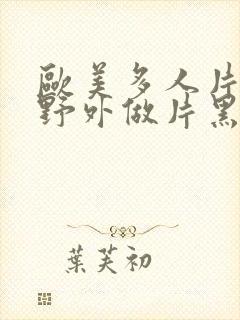 歐美多人片
野外做片黑
葉芙初